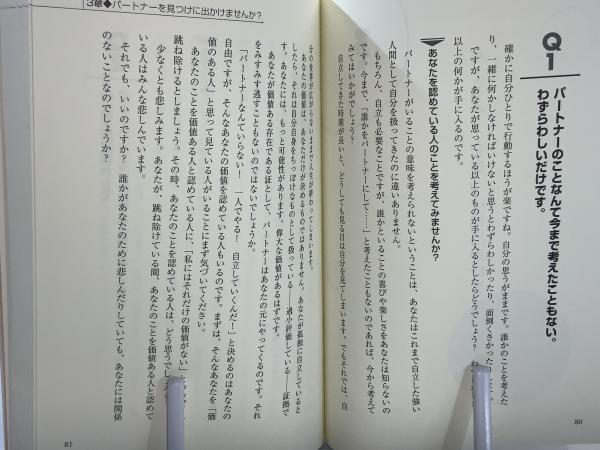 Q1
パートナーのことなんて今まで考えたこともない。
わずらわしいだけです。
確かに自分ひとりで行動するほうが楽ですね。自分の思うがままです。誰かのことを考えた
り、一緒に何かしなければいけないと思うとわずらわしかったり、面倒くさかったり
ですが、あなたが思っている以上のものが手に入るとしたらどうでしょう？
以上の何かが手に入るのです。
あなたを認めている人のことを考えてみませんか？
パートナーがいることの意味を考えられないということは、あなたはこれまで自立した強い
人間として自分を扱ってきたのに違いありません。
もちろん、自立も必要なことですが、誰かといることの喜びや楽しさをあなたは知らないの
です。今まで、「誰かをパートナーにして……」と考えたこともないのであれば、今から考えて
みてはいかがでしょう。
自立してきた時間が長いと、どうしても見る目は自分を見てしまいます。でもそれでは、自
分の世界が広がらないままで人生が終わってしまいます。
あなたの価値は、あなただけが決めるものではありません。あなたが孤独に自立していると
したら、それは自分自身をちっぽけなものとして扱っている――過小評価している――証拠で
す。あなたには、もっと可能性があります。偉大な価値があるはずです。
あなたが価値ある存在である証として、パートナーはあなたの元にやってくるのです。それ
をみすみす逃すこともないのではないでしょうか。
「パートナーなんていらない！　一人でやる！　自立していくんだ！」と決めるのはあなたの
自由ですが、そんなあなたの価値を認めている人もいるのです。まずは、そんなあなたを「価
値のある人」と思って見ている人がいることにまず気づいてください。
あなたのことを価値ある人と認めている人に、「私にはそれだけの価値がない」
跳ね除けるとしましょう。その時、あなたのことを認めている人は、どう思うでし
少なくとも悲しみます。あなたが、跳ね除けている間、あなたのことを価値ある人と認めて
いる人はみんな悲しんでいます。
それでも、いいのですか？　誰かがあなたのために悲しんだりしていても、あなたには関係
のないことなのでしょうか？
80
3章◆パートナーを見つけに出かけませんか？
81